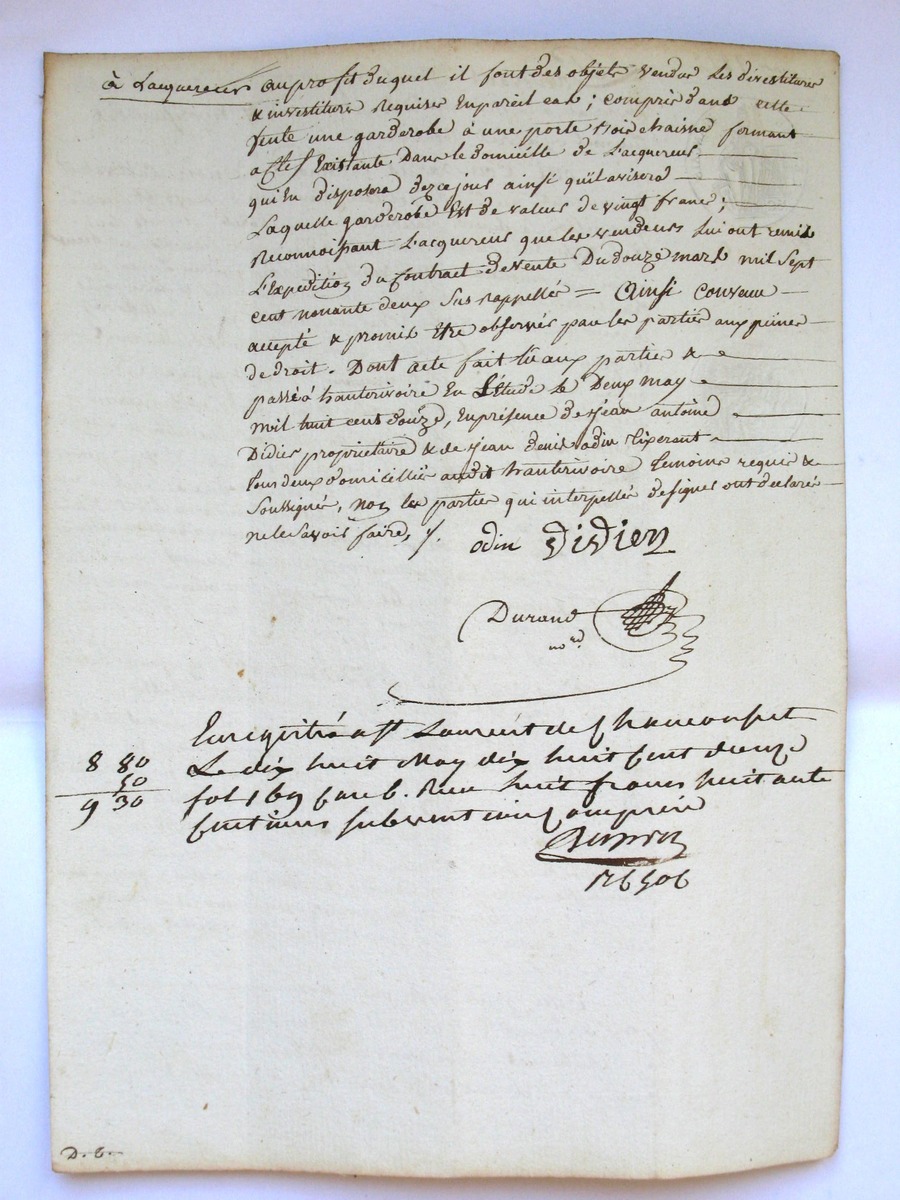 à Lacquereur au profit duquel il font des objets vendus les devestitures
& investitures Requises En pareil cas ; compris dans cette
vente une garderobe à une porte bois chaisne formant
a clef Existante Dans le domicille de L'acquereur
qui En disposera dezce jour ainsi quil avisera
Laquelle garderobe Est de valeur de vingt francs ;
Reconnoissant L'acquereur que les vendeurs Lui ont remis
L'Expedition du Contract de vente Du douze mars mil sept
cent nonante deux sus rappellée = Ainsi convenu
accepté & promis Etre observés par les parties aux peines
de droit. Dont acte fait lu aux parties &
passé à hauterivoire En L'étude le Deux may
mil huit cent douze, En présence de sjean antoine
Didier proprietaire & de sjean denis odin Tixerant
tous deux domicilliés audit hauterivoire temoins requis &
soussignés, non les parties qui interpellés de signer ont declaré
ne le savoir faire, /.
odin Didier
Durand
no.re
Enregistré a St Laurent de Chamousset
Le dix huit May dix huit Cent douze
fol 169 Case 6. Reçu huit francs huitante
Centimes subvention Comprise
8 80
50
9 30
176506
D. 6.